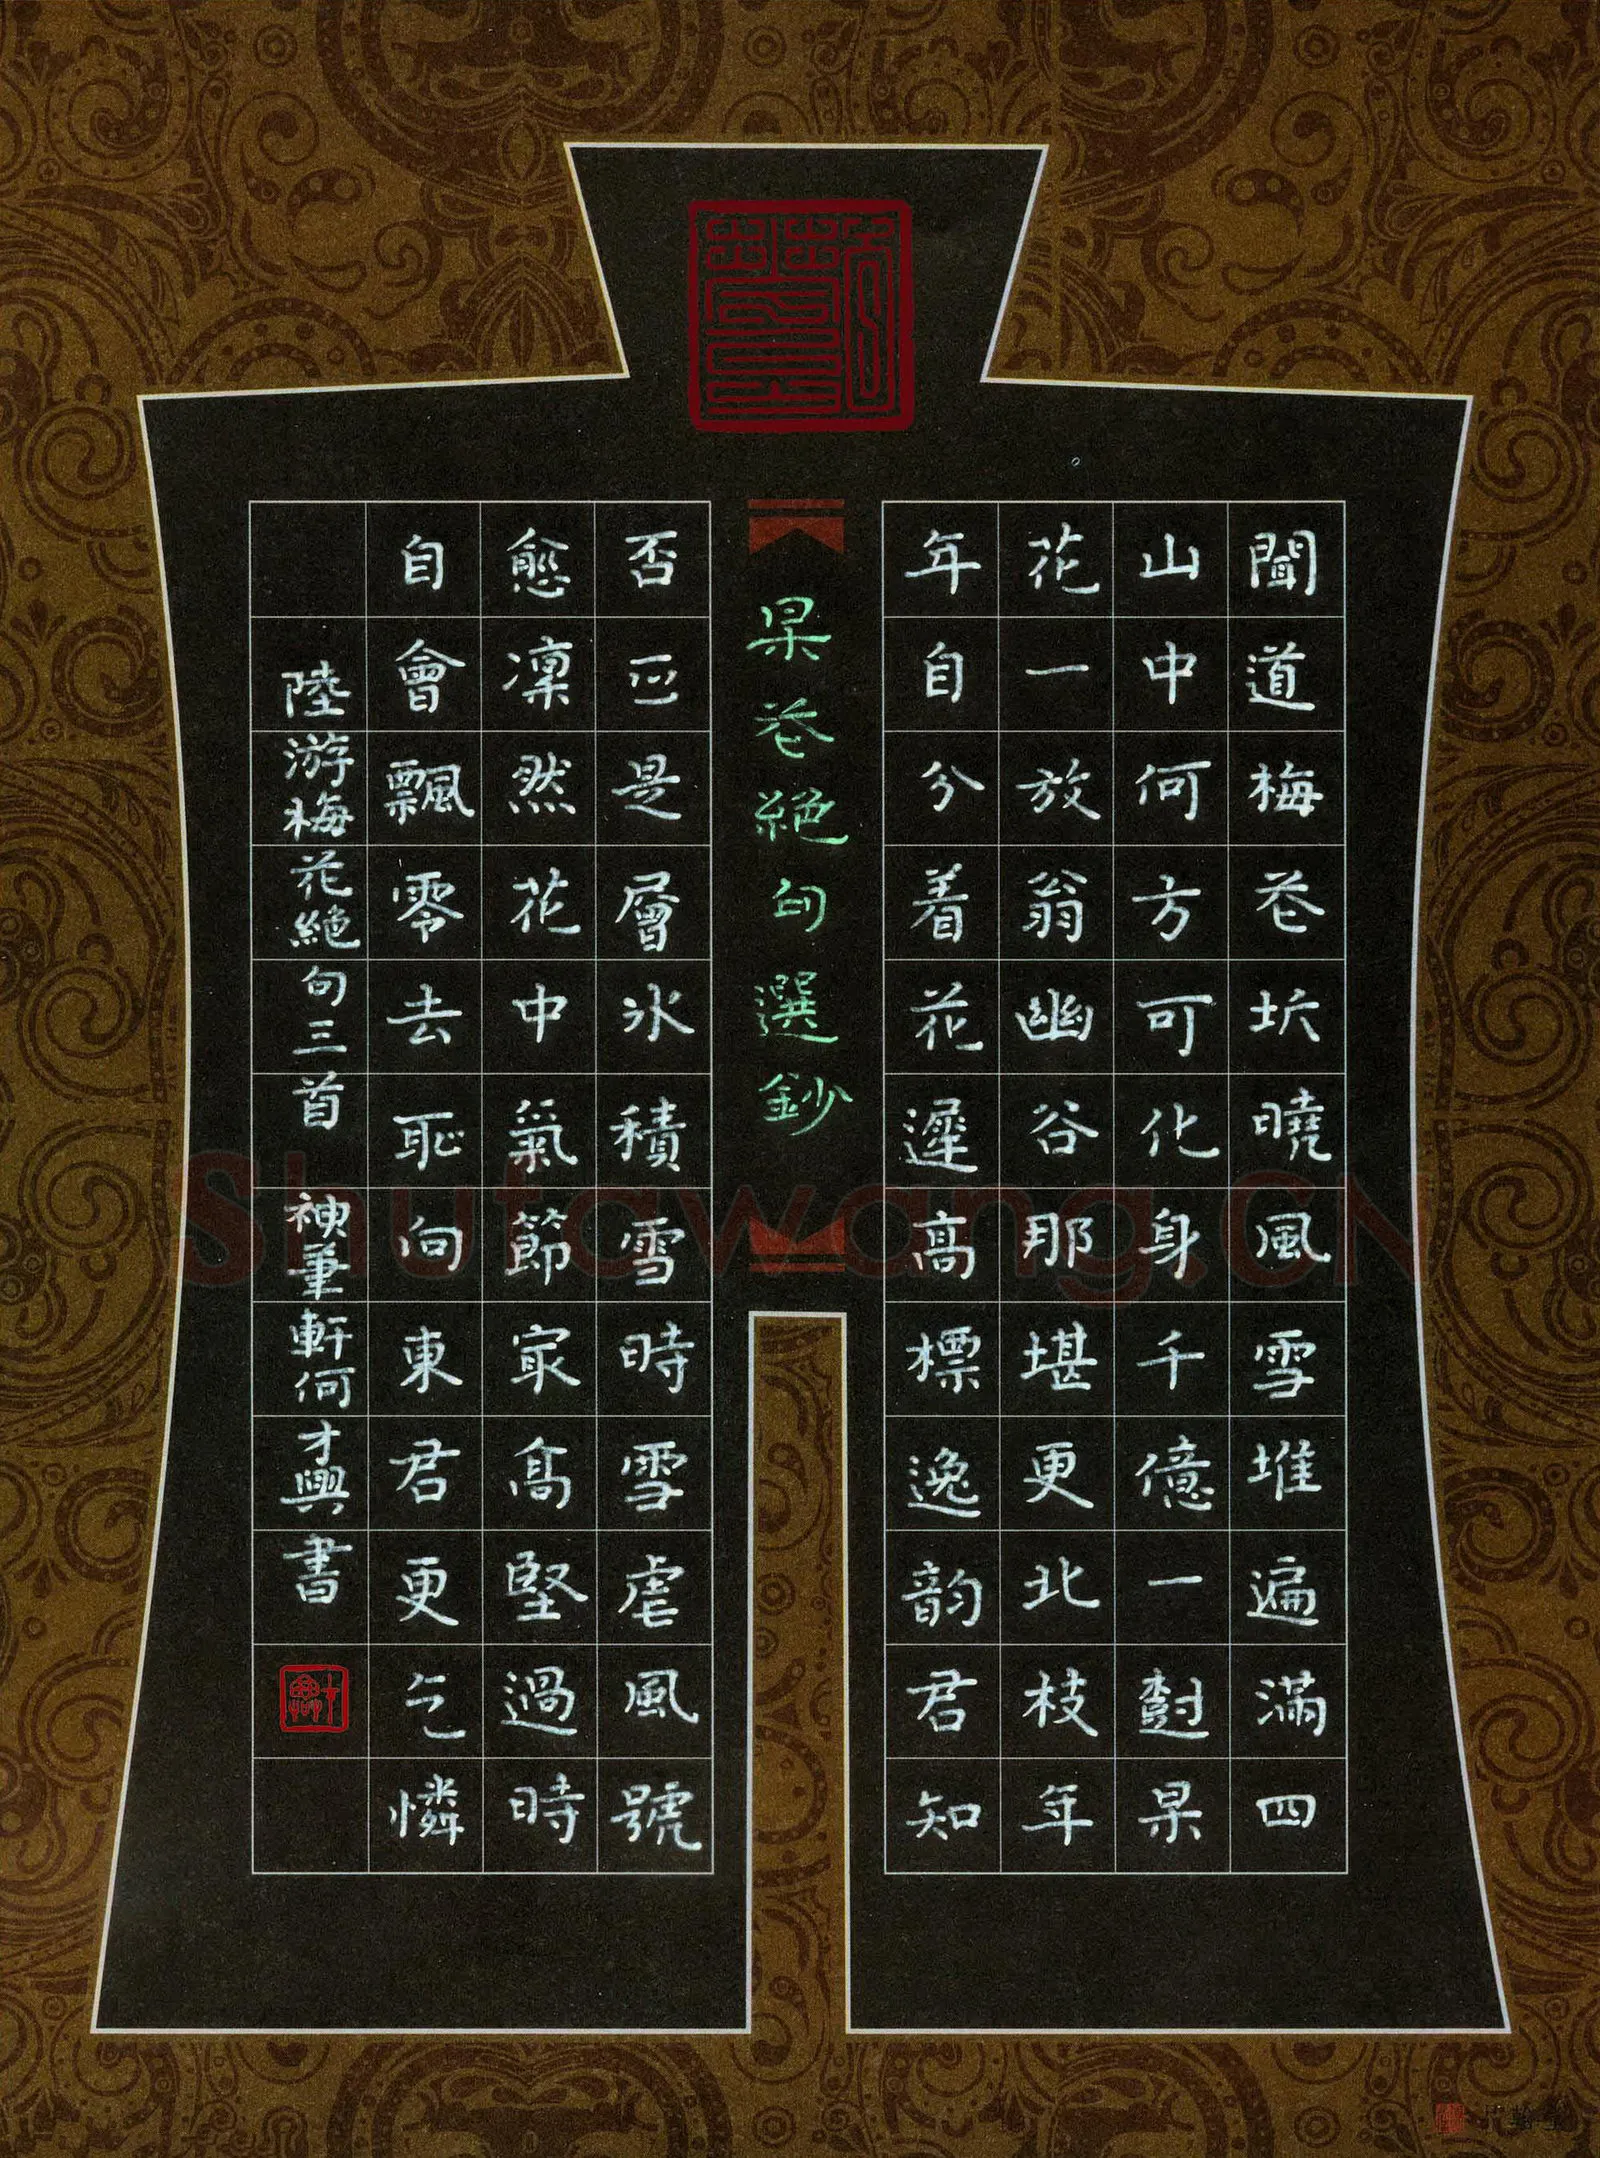 聞道梅芲坼曉風雪堆遍滿四
山中何方可化身千億一尌呆
花一放翁幽谷那堪更北枝年
年自分着花遲高標逸韵君知
呆芲絕句選鈔
否正是層氷積雪時雪虐風號
愈凜然花中氣節冣高堅過時
自會飄零去恥向東君更乞憐
陸游梅花絕句三首 神筆軒何才興書
Shufawang.CN